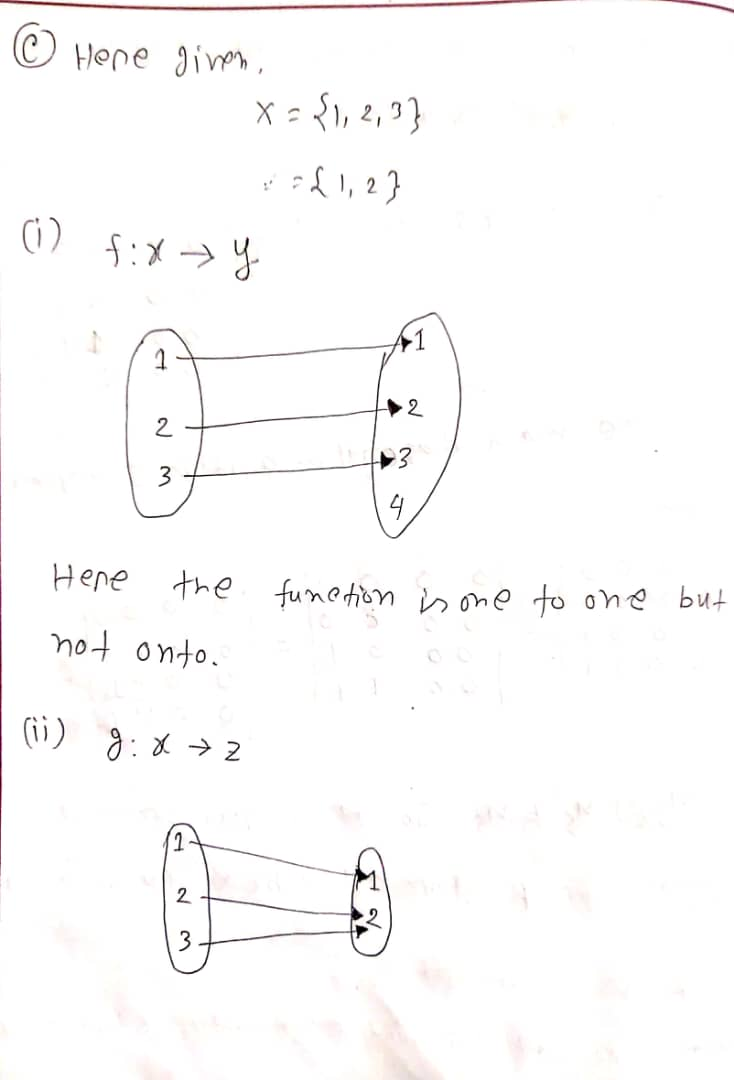 (C) Here given,
X = {1, 2, 3}
= {1, 2}
(i) f: x → y
1 1
2 2
3 3
4
Here the function is one to one but
not onto.
(ii) g: x → z
1 1
2 2
3